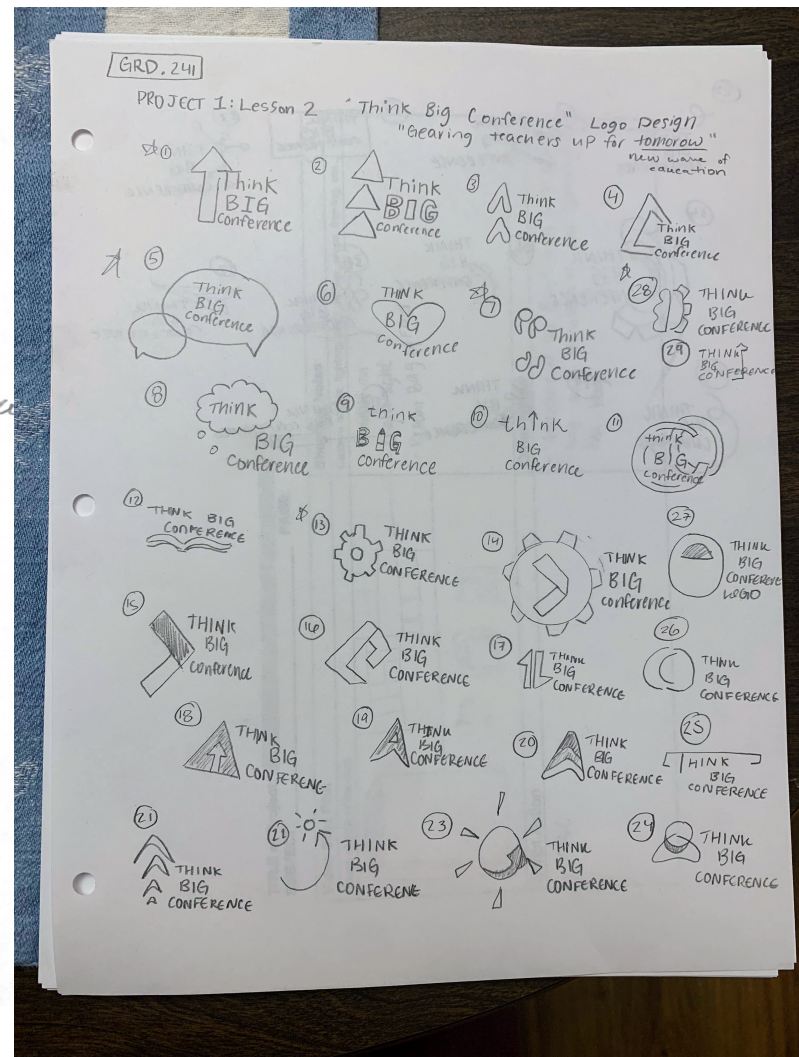 GRD.241
PROJECT 1: Lesson 2 "Think Big Conference" Logo Design
"Gearing teachers up for tomorow"
new wave of
eaucation
①
Think
BIG
Conference
②
Think
BIG
conference
③
Think
BIG
conference
④
Think
BIG
Conference
⑤
Think
BIG
Conference
⑥
THINK
BIG
conference
7
Think
BIG
Conference
28
THINK
BIG
CONFERENCE
29
THINK
BIG
CONFERENCE
⑧
Think
BIG
Conference
⑨
think
BIG
conference
10
think
BIG
conference
11
think
BIG
conference
12
THINK BIG
CONFERENCE
13
THINK
BIG
CONFERENCE
14
THINK
BIG
conference
27
THINK
BIG
CONFERENE
LOGO
15
THINK
BIG
Conference
16
THINK
BIG
CONFERENCE
17
THINK
BIG
CONFERENCE
26
THINK
BIG
CONFERENCE
18
THINK
BIG
CONFERENE
19
THINK
BIG
CONFERENCE
20
THINK
BIG
CONFERENCE
25
THINK
BIG
CONFERENCE
21
THINK
BIG
CONFERENCE
21
THINK
BIG
CONFERENE
23
THINK
BIG
CONFERENCE
24
THINK
BIG
CONFERENCE